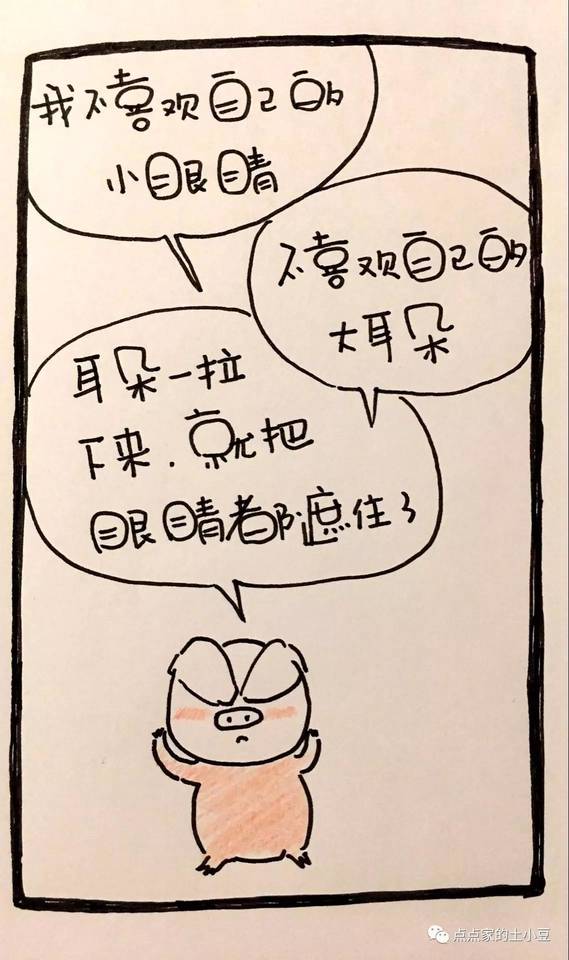 我不喜欢自己的
小眼睛
不喜欢自己的
大耳朵
耳朵一拉
下来.就把
眼睛都遮住了
点点家的土小豆